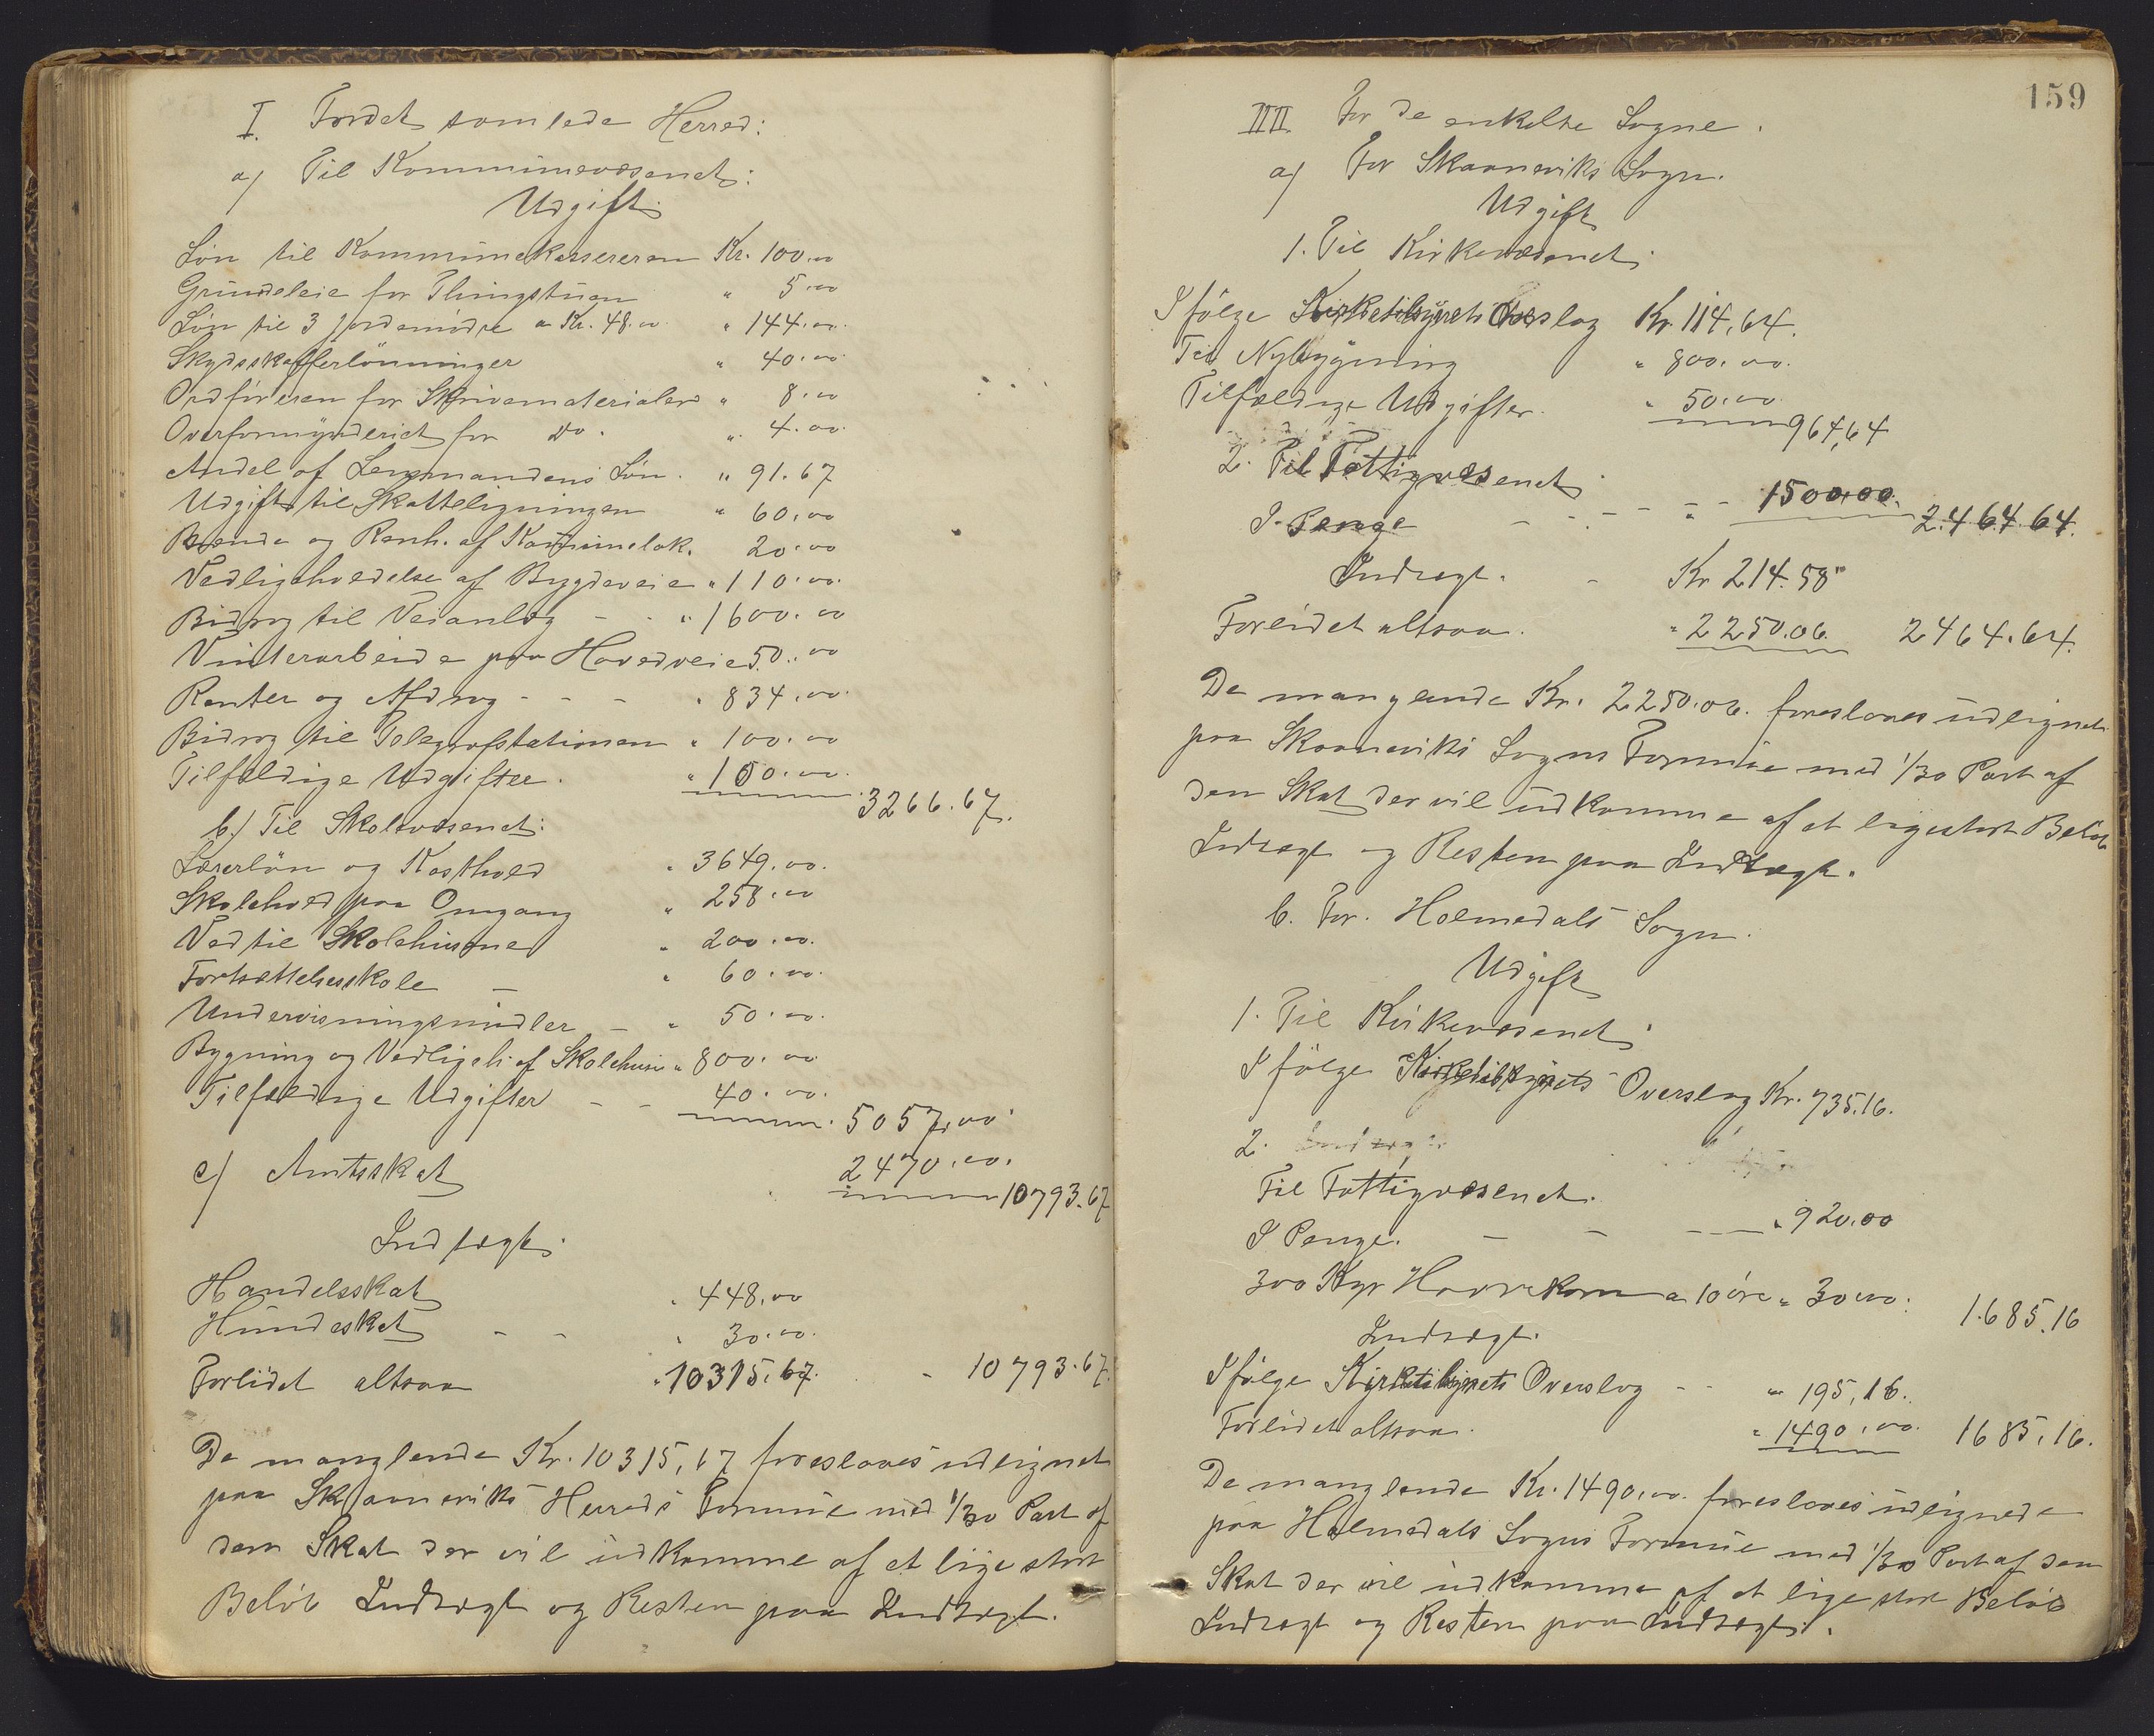 I. For det samlede Herred:
a) Til Kommunevæsenet:
Udgift
Løn til Kommunekassereren Kr. 100.00
Grundeleie for Thingstuen " 5.00
Løn til 3 Jordemødre a Kr. 48.00 " 144.00
Skydsskafferlønninger " 40.00
Ordføreren for Skrivematerialer " 8.00
Overformynderiet for Do. " 4.00
Andel af Lensmandens Løn. " 91.67
Udgift til Skatteligningen " 60.00
Brænde og Renh. af Kommunelok. 20.00
Vedligeholdelse af Bygdeveie " 110.00
Bidrag til Veianlæg - - " 1600.00
Vinterarbeide paa Hovedveie 50.00
Renter og Afdrag - - - " 834.00
Bidrag til Telegrafstationen " 100.00
Tilfældige Udgifter. " 100.00
3266.67.
b.) Til Skolevæsenet:
Lærerløn og Kosthold " 3649.00.
Skolehold paa Omgang " 258.00
Ved til Skolehusene " 200.00.
Fortsættelsesskole - " 60.00.
Undervisningsmidler - " 50.00.
Bygning og Vedligeh. af Skolehuse " 800.00
Tilfældige Udgifter - - 40.00.
5057.00
c) Amtsskat 2470.00.
10793.67
Indtægt.
Handelsskat " 448.00
Hundeskat - - " 30.00.
Forlidet altsaa " 10315.67. - 10793.67.
De manglende Kr. 10315,67 foreslaaes udlignet
paa Skaaneviks Herreds Formue med 1/30 Part af
den Skat der vil udkomme af et lige stort
Beløb Indtægt og Resten paa Indtægt.
159
II For de enkelte Sogne.
a) For Skaaneviks Sogn.
Udgift
1. Til Kirkevæsenet:
Ifølge Kirketilsynets Overslag Kr. 114,64.
Til Nybygning " 800.00.
Tilfældige Udgifter. " 50.00
964,64
2. Til Fattigvæsenet
I Penge - - - - - " 1500.00. 2.464.64.
Indtægt. - Kr 214.58"
Forlidet altsaa. " 2250.06. 2464.64.
De manglende Kr. 2250.06. foreslaaes udlignet
paa Skaaneviks Sogns Formue med 1/30 Part af
den Skat der vil udkomme af et ligestort Beløb
Indtægt og Resten paa Indtægt.
b. For Holmedals Sogn.
Udgift
1. Til Kirkevæsenet
Ifølge Kirketilsynets Overslag Kr. 735.16.
2.
Til Fattigvæsenet.
I Penge. - - - " 920.00
300 Kgr Havrekorn a 10 øre " 30.00. 1.685.16
Indtægt.
Ifølge Kirketilsynets Overslag - - " 195,16.
Forlidet altsaa. " 1490.00. 1685,16.
De manglende Kr. 1490,00. foreslaaes udlignede
paa Holmedals Sogns Formue med 1/30 Part af den
Skat der vil udkomme af et lige stort Beløb
Indtægt og Resten paa Indtægt.